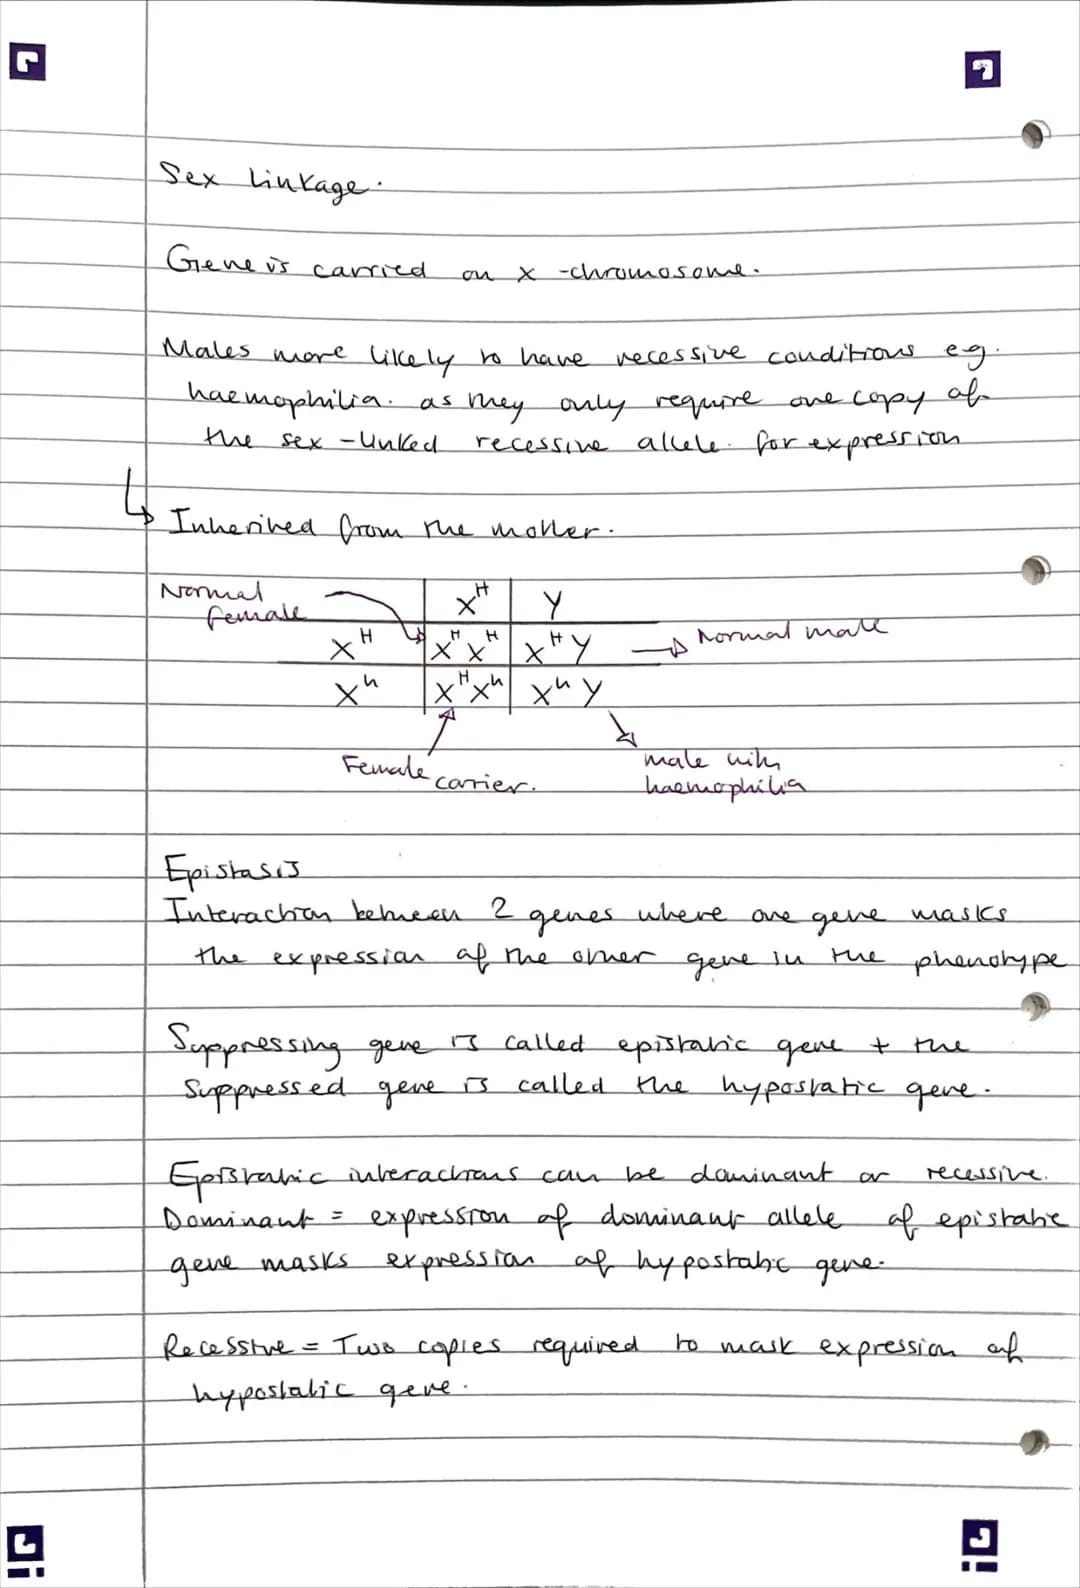 Sex Linkage.
Gene is carried on X-chromosome.
Males more likely to have recessive conditions eg.
haemophilia. as they only require one copy of
the sex-linked recessive allele. for expression
↳ Inherited from the mother.
Normal female
X^H Y
X^H X^H X^H X^H Y → Normal male
X^h X^H X^h X^h Y
Female carrier.
male with
haemophilia
Epistasis
Interaction between 2 genes where one gene masks
the expression of the other gene in the phenotype
Suppressing gene is called epistatic gene + the
suppressed gene is called the hypostatic gene.
Epistatic interactions can be dominant or recessive.
Dominant = expression of dominant allele of epistatic
gene masks expression of hypostatic gene.
Recessive = Two copies required to mask expression of
hypostatic gene.